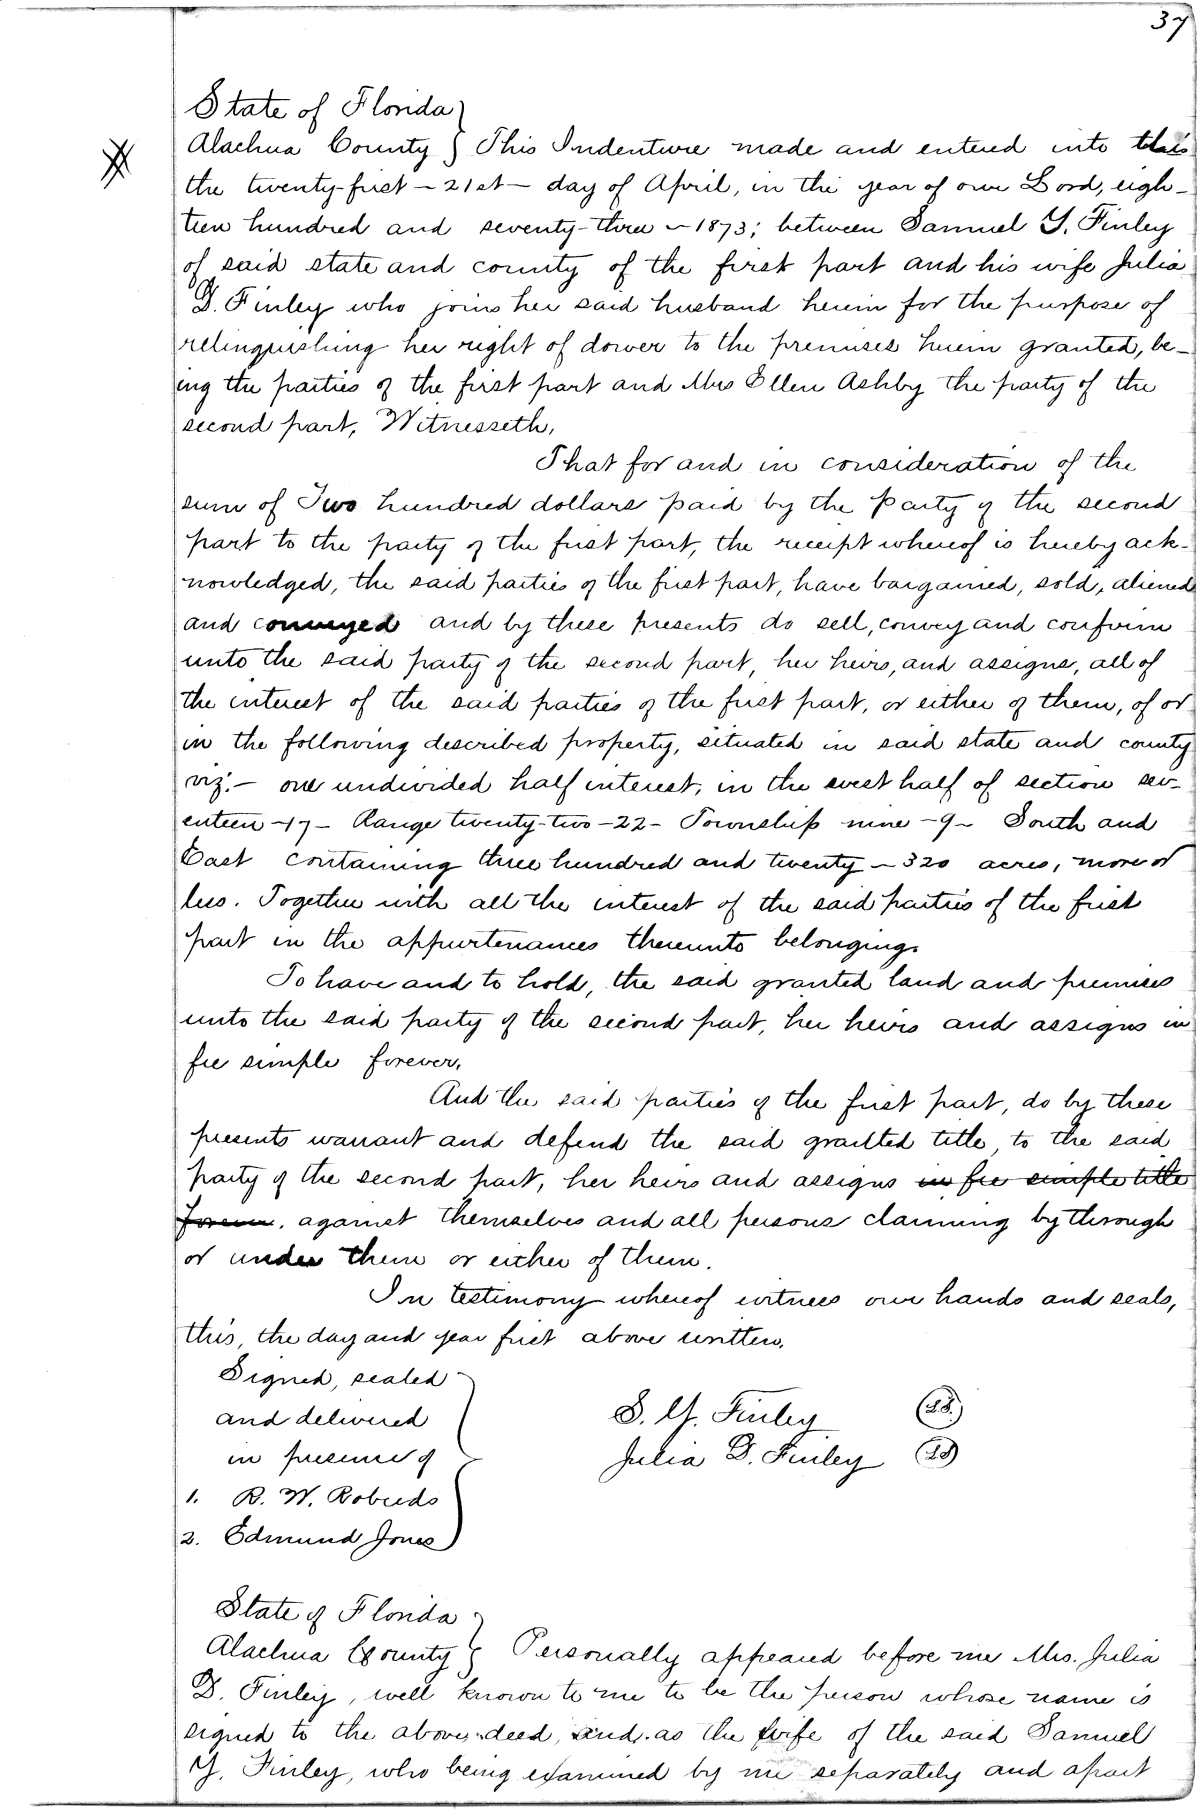 37
State of Florida }
Alachua County } This Indenture made and entered into this
the twenty-first – 21st – day of April, in the year of our Lord, eigh-
teen hundred and seventy-three – 1873; between Samuel Y. Finley
of said state and county of the first part and his wife Julia
D. Finley who joins her said husband herein for the purpose of
relinquishing her right of dower to the premises herein granted, be-
ing the parties of the first part and Mrs Ellen Ashby the party of the
second part, Witnesseth,
That for and in consideration of the
sum of Two hundred dollars paid by the party of the second
part to the party of the first part, the receipt whereof is hereby ack-
nowledged, the said parties of the first part, have bargained, sold, aliened
and conveyed and by these presents do sell, convey and confirm
unto the said party of the second part, her heirs, and assigns, all of
the interest of the said parties of the first part, or either of them, of or
in the following described property, situated in said state and county
viz:– one undivided half interest, in the west half of section sev-
enteen –17– Range twenty-two –22– Township nine –9– South and
East containing three hundred and twenty – 320 acres, more or
less. Together with all the interest of the said parties of the first
part in the appurtenances thereunto belonging.
To have and to hold, the said granted land and premises
unto the said party of the second part, her heirs and assigns in
fee simple forever.
And the said parties of the first part, do by these
presents warrant and defend the said granted title, to the said
party of the second part, her heirs and assigns in fee simple title
forever, against themselves and all persons claiming by through
or under them or either of them.
In testimony whereof witness our hands and seals,
this, the day and year first above written.
Signed, sealed
and delivered
in presence of
1. R. W. Roberds
2. Edmund Jones
S. Y. Finley (L.S.)
Julia D. Finley (LS)
State of Florida }
Alachua County } Personally appeared before me Mrs. Julia
D. Finley, well known to me to be the person whose name is
signed to the above deed, and as the wife of the said Samuel
Y. Finley, who being examined by me separately and apart